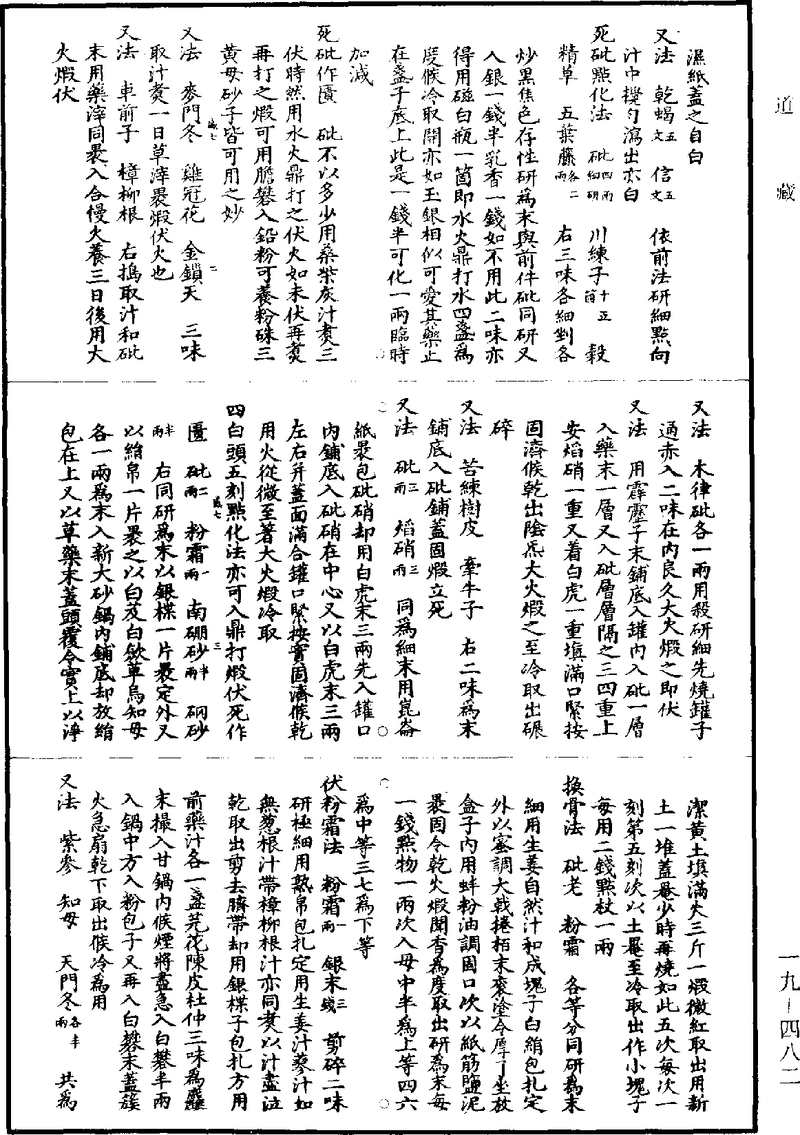 道藏
濕紙蓋之自白
又法 乾蝎五文 信五文 依前法研細點向
汁中攪勺瀉出亦白
死砒點化法 砒四兩細研 川練子十五箇 穀
精草 五葉藤各二兩 右三味各細剉各
炒黑焦色存性研爲末與前件砒同研又
入銀一錢半乳香一錢如不用此二味亦
得用磁白瓶一箇即水火鼎打水四盞爲
度候冷取開亦如玉銀相似可愛其藥止
在盞子底上此是一錢半可化一兩臨時
加減
死砒作匱 砒不以多少用桑柴灰汁煑三
伏時然用水火鼎打之伏火如未伏再煑
再打之煅可用膽礬入鉛粉可養粉硃三
黃母砂子皆可用之妙
又法 麥門冬 雞冠花 金鎖天 三味
取汁煑一日草滓裹煅伏火也
又法 車前子 樟柳根 右搗取汁和砒
末用藥滓同裹入合慢火養三日後用大
火煅伏
又法 木律砒各一兩用殺研細先燒罐子
通赤入二味在內良久大火煅之即伏
又法 用霹靂子末鋪底入罐內入砒一層
入藥末一層又入砒層層隔之三四重上
安焰硝一重又着白虎一重塡滿口緊按
固濟候乾出陰炁大火煅之至冷取出碾
碎
又法 苦練樹皮 牽牛子 右二味爲末
鋪底入砒鋪蓋固煅立死
又法 砒三兩 焰硝三兩 同爲細末用崑崙
紙裹包砒硝却用白虎末三兩先入罐口
內鋪底入砒硝在中心又以白虎末三兩
左右并蓋面滿合罐口緊按實固濟候乾
用火從微至著大火煅冷取
四白頭五刻點化法亦可入鼎打煅伏死作
匱 砒二兩 粉霜一兩 南硼砂半兩 硇砂
半兩 右同研爲末以銀楪一片裹定外又
以絹帛一片裹之以白及白斂草烏知母
各一兩爲末入新大砂鍋內鋪底却放絹
包在上又以草藥末蓋頭覆令實上以淨
潔黃土塡滿失三斤一煅微紅取出用新
土一堆蓋罨少時再燒如此五次每次一
刻第五刻次以土罨至冷取出作小塊子
每用二錢點杖一兩
換骨法 砒老 粉霜 各等分同研爲末
細用生姜自然汁和成塊子白絹包扎定
外以蜜調大戟捲栢末褁塗令厚了坐放
盒子內用蚌粉油調固口次以紙筋鹽泥
裹固令乾火煅聞香爲度取出研爲末每
一錢點物一兩次入母中半爲上等四六
爲中等三七爲下等
伏粉霜法 粉霜一兩 銀末三錢 剪碎二味
研極細用熟帛包扎定用生姜汁蓼汁如
無葱根汁帶樟柳根汁亦同煑以汁盡泣
乾取出剪去臍帶却用銀楪子包扎方用
前藥汁各一盞芫花陳皮杜仲三味爲麤
末撮入甘鍋內候煙將盡急入白礬半兩
入鍋中方入粉包子又再入白礬末蓋簇
火急扇乾下取出候冷爲用
又法 紫參 知母 天門冬各半兩 共爲
一九－四八二